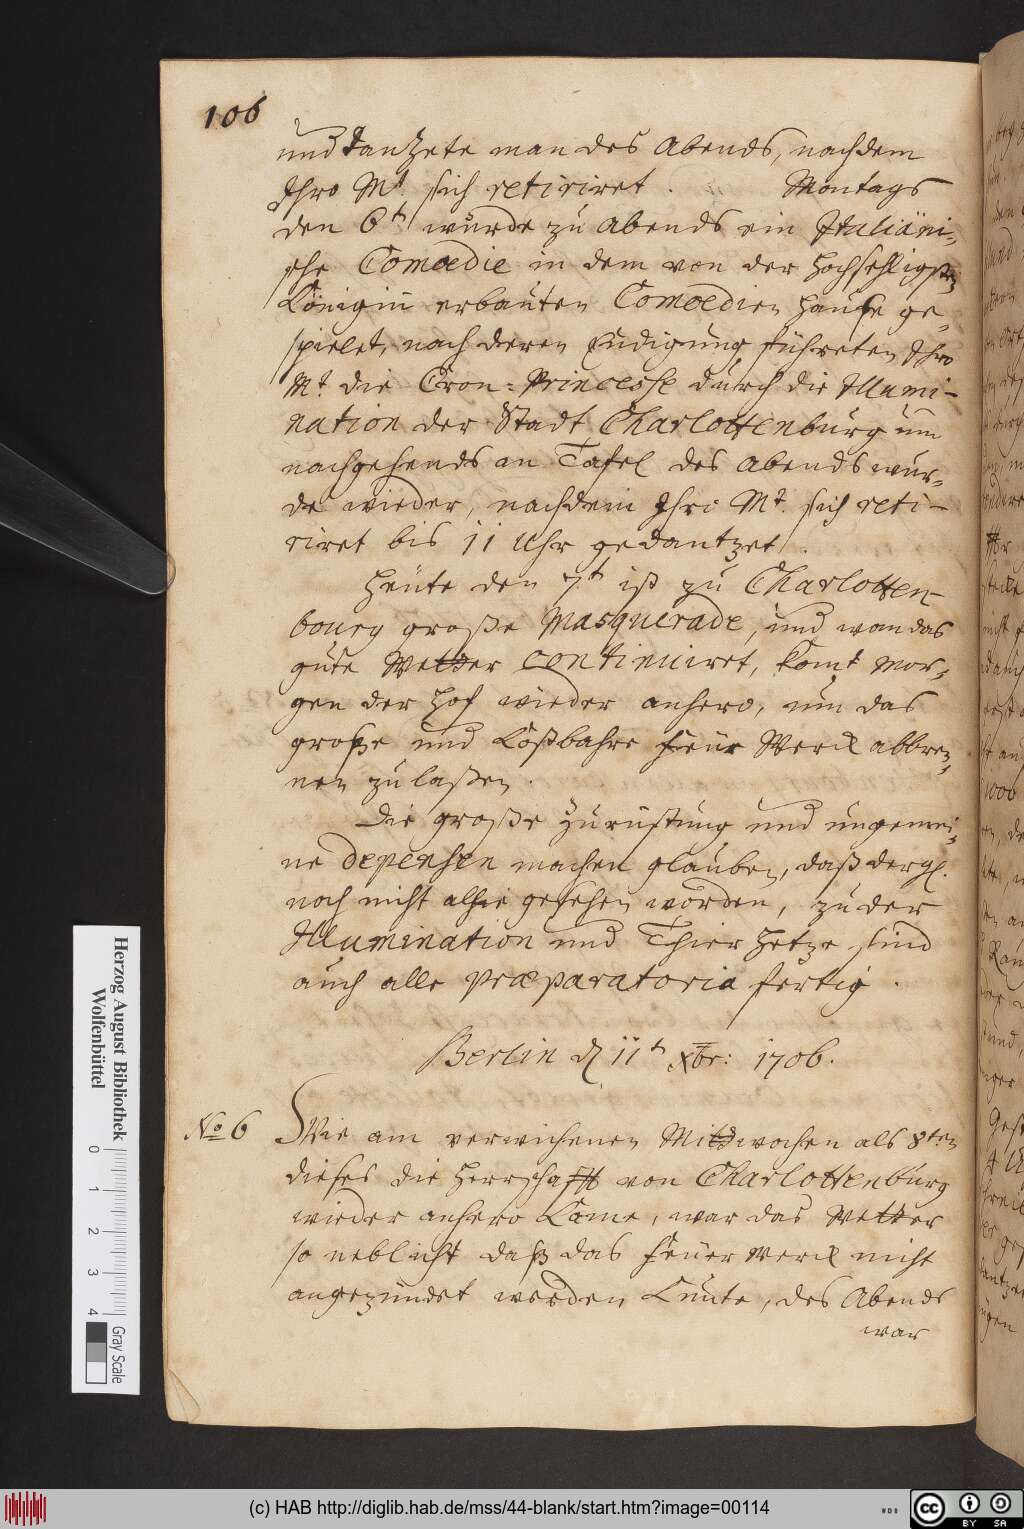 106
und dantzete man des Abends, nachdem
Ihro Mt. sich retiriret. Montags
den 6t. wurde zu Abends ein Italiäni-
sche Comoedie in dem von der Hochseeligsten
Königin erbauten Comoedien Hause ge-
spielet, nach deren Endigung führeten Ihro
Mt. die Cron-Princesse durch die Illumi-
nation der Stadt Charlottenburg um
nachgehends an Tafel des Abends wur-
de wieder, nachdem Ihro Mt. sich reti-
riret bis 11 Uhr gedantzet.
Heute den 7t. ist zu Charlotten-
bourg große Masquerade, und wan das
gute Wetter continuiret, komt mor-
gen der Hof wieder anhero, um das
große und Kostbahre Feuer Werck abbren-
nen zu laßen.
Die große Zurüstung und ungemei-
ne depensen machen glauben, daß dergl.
noch nicht alhie gesehen worden, zu der
Illumination und Thier Hetze sind
auch alle Præparatoria fertig.
Berlin d 11t. Xbr: 1706.
No 6 Wie am verwichenen Mittwochen als 8ten
dieses die Herrschafft von Charlottenburg
wieder anhero kame, war das Wetter
so neblicht daß das Feuer Werck nicht
angezündet werden kunte, des Abends
war
Herzog August Bibliothek
Wolfenbüttel
0 1 2 3 4
Gray Scale
(c) HAB http://diglib.hab.de/mss/44-blank/start.htm?image=00114
WDB
cc
BY SA